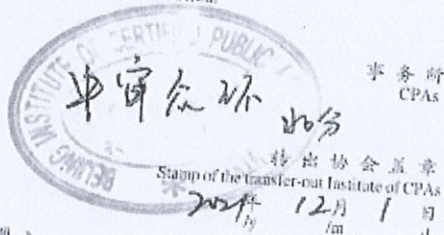 BEIJING INSTITUTE OF CERTIFIED PUBLIC
事务所
CPAs
中审众环
转出协会盖章
Stamp of the transfer-out Institute of CPAs
2021年 12月 1日
/y /m